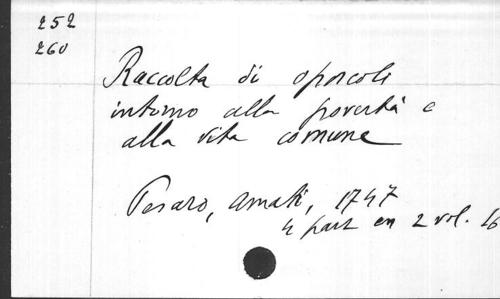 252
260
Raccolta di opuscoli
intorno alla povertà e
alla vita comune
Pesaro, Amati, 1747
4 part en 2 vol. 16